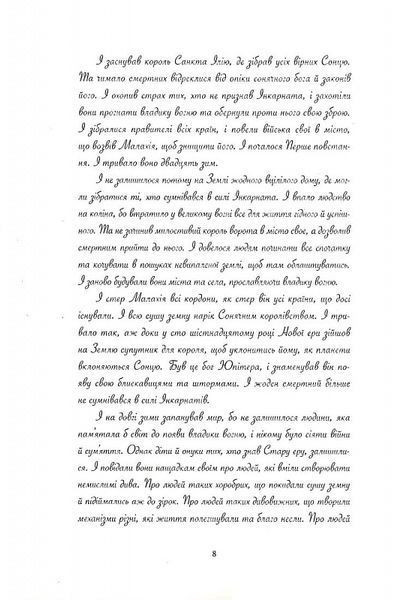 І заснував король Санкта Ілію, де зібрав усіх вірних Сонцю.
Та чимало смертних відреклися від опіки сонячного бога й законів
його. І охопив страх тих, хто не признав Інкарната, і захотіли
вони прогнати владику вогню та обернули проти нього свою зброю.
І зібралися правителі всіх країн, і повели війська свої в місто,
що возвів Малахія, щоб знищити його. І почалося Перше повстан-
ня. І тривало воно двадцять зим.
І не залишилося потому на Землі жодного вцілілого дому, де мог-
ли зібратися ті, хто сумнівався в силі Інкарната. І впало людство
на коліна, бо втратило у великому вогні все для життя гідного й успіш-
ного. Та не зачинив милостивий король ворота в місто своє, а дозволив
смертним прийти до нього. І довелося людям починати все спочатку
та кочувати в пошуках невипаленої землі, щоб там облаштуватись.
І заново будували вони міста та села, прославляючи владику вогню.
І стер Малахія всі кордони, як стер він усі країни, що досі
існували. І всю сушу земну нарік Сонячним королівством. І три-
вало так, аж доки у сто шістнадцятому році Нової ери зійшов
на Землю супутник для короля, щоб уклонитись йому, як планети
вклоняються Сонцю. Був це бог Юпітера, і знаменував він по-
яву свою блискавицями та штормами. І жоден смертний більше
не сумнівався в силі Інкарнатів.
І на довгі зими запанував мир, бо не залишилося людини, яка
пам'ятала б світ до появи владики вогню, і нікому було сіяти війни
й сум'яття. Однак діти й онуки тих, хто знав Стару еру, залиши-
лися. І повідали вони нащадкам своїм про людей, які вміли створювати
немислимі дива. Про людей таких хоробрих, що покидали сушу земну
й підіймались аж до зірок. Про людей таких дивовижних, що творили
механізми різні, які життя полегшували та благо несли. Про людей
8